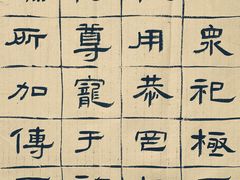 眾祀極
用恭罔
尊寵于
所加傳